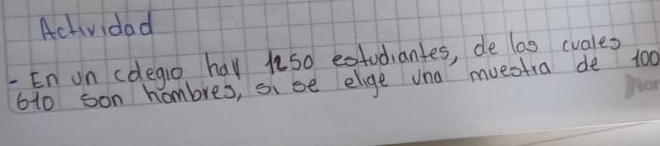 Actividad
- En un colegio hay 1250 estudiantes, de las cuales
610 son hombres, si se elige una muestra de 100